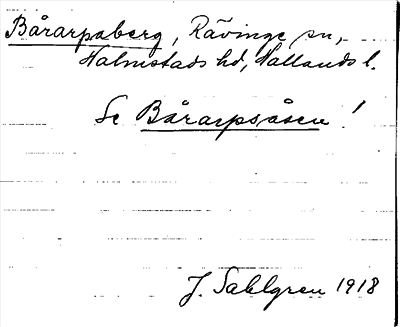 Bårarpaberg, Rävinge sn,
Halmstads hd, Hallands l.
Se Bårarpsåsen!
J. Sahlgren 1918